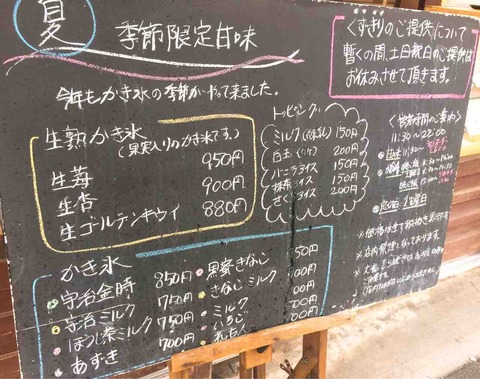 夏 季節限定甘味
今年もかき氷の季節がやって来ました。
くずきりのご提供について
暫くの間、土日祝日のご提供は
お休みさせて頂きます。
生熟かき氷
(果実入りのかき氷です。)
950円
生苺 900円
生杏 880円
生ゴールデンキウイ
トッピング
ミルク 150円
白玉 200円
バニラアイス 150円
抹茶アイス 150円
さくらアイス 200円
〈営業時間のご案内〉
11:30~22:00
11:30~
定休日 日曜日
※店内禁煙となっております。
かき氷
宇治金時 850円
宇治ミルク 750円
ほうじ茶ミルク 750円
あずき 700円
黒蜜きなこ 50円
きなこミルク 00円
ミルク 00円
いちご 00円
れもん 00円